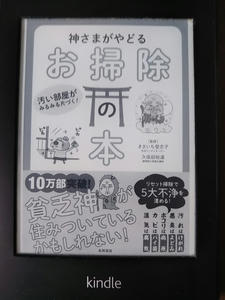 神さまがやどる
お掃除
の
本
汚い部屋が
みるみる片づく!
【監修】
きさいち登志子
久保田裕道
10万部突破!
貧乏神が
住みついている
かもしれない!
リセット掃除で
5大不浄を
清める!
kindle